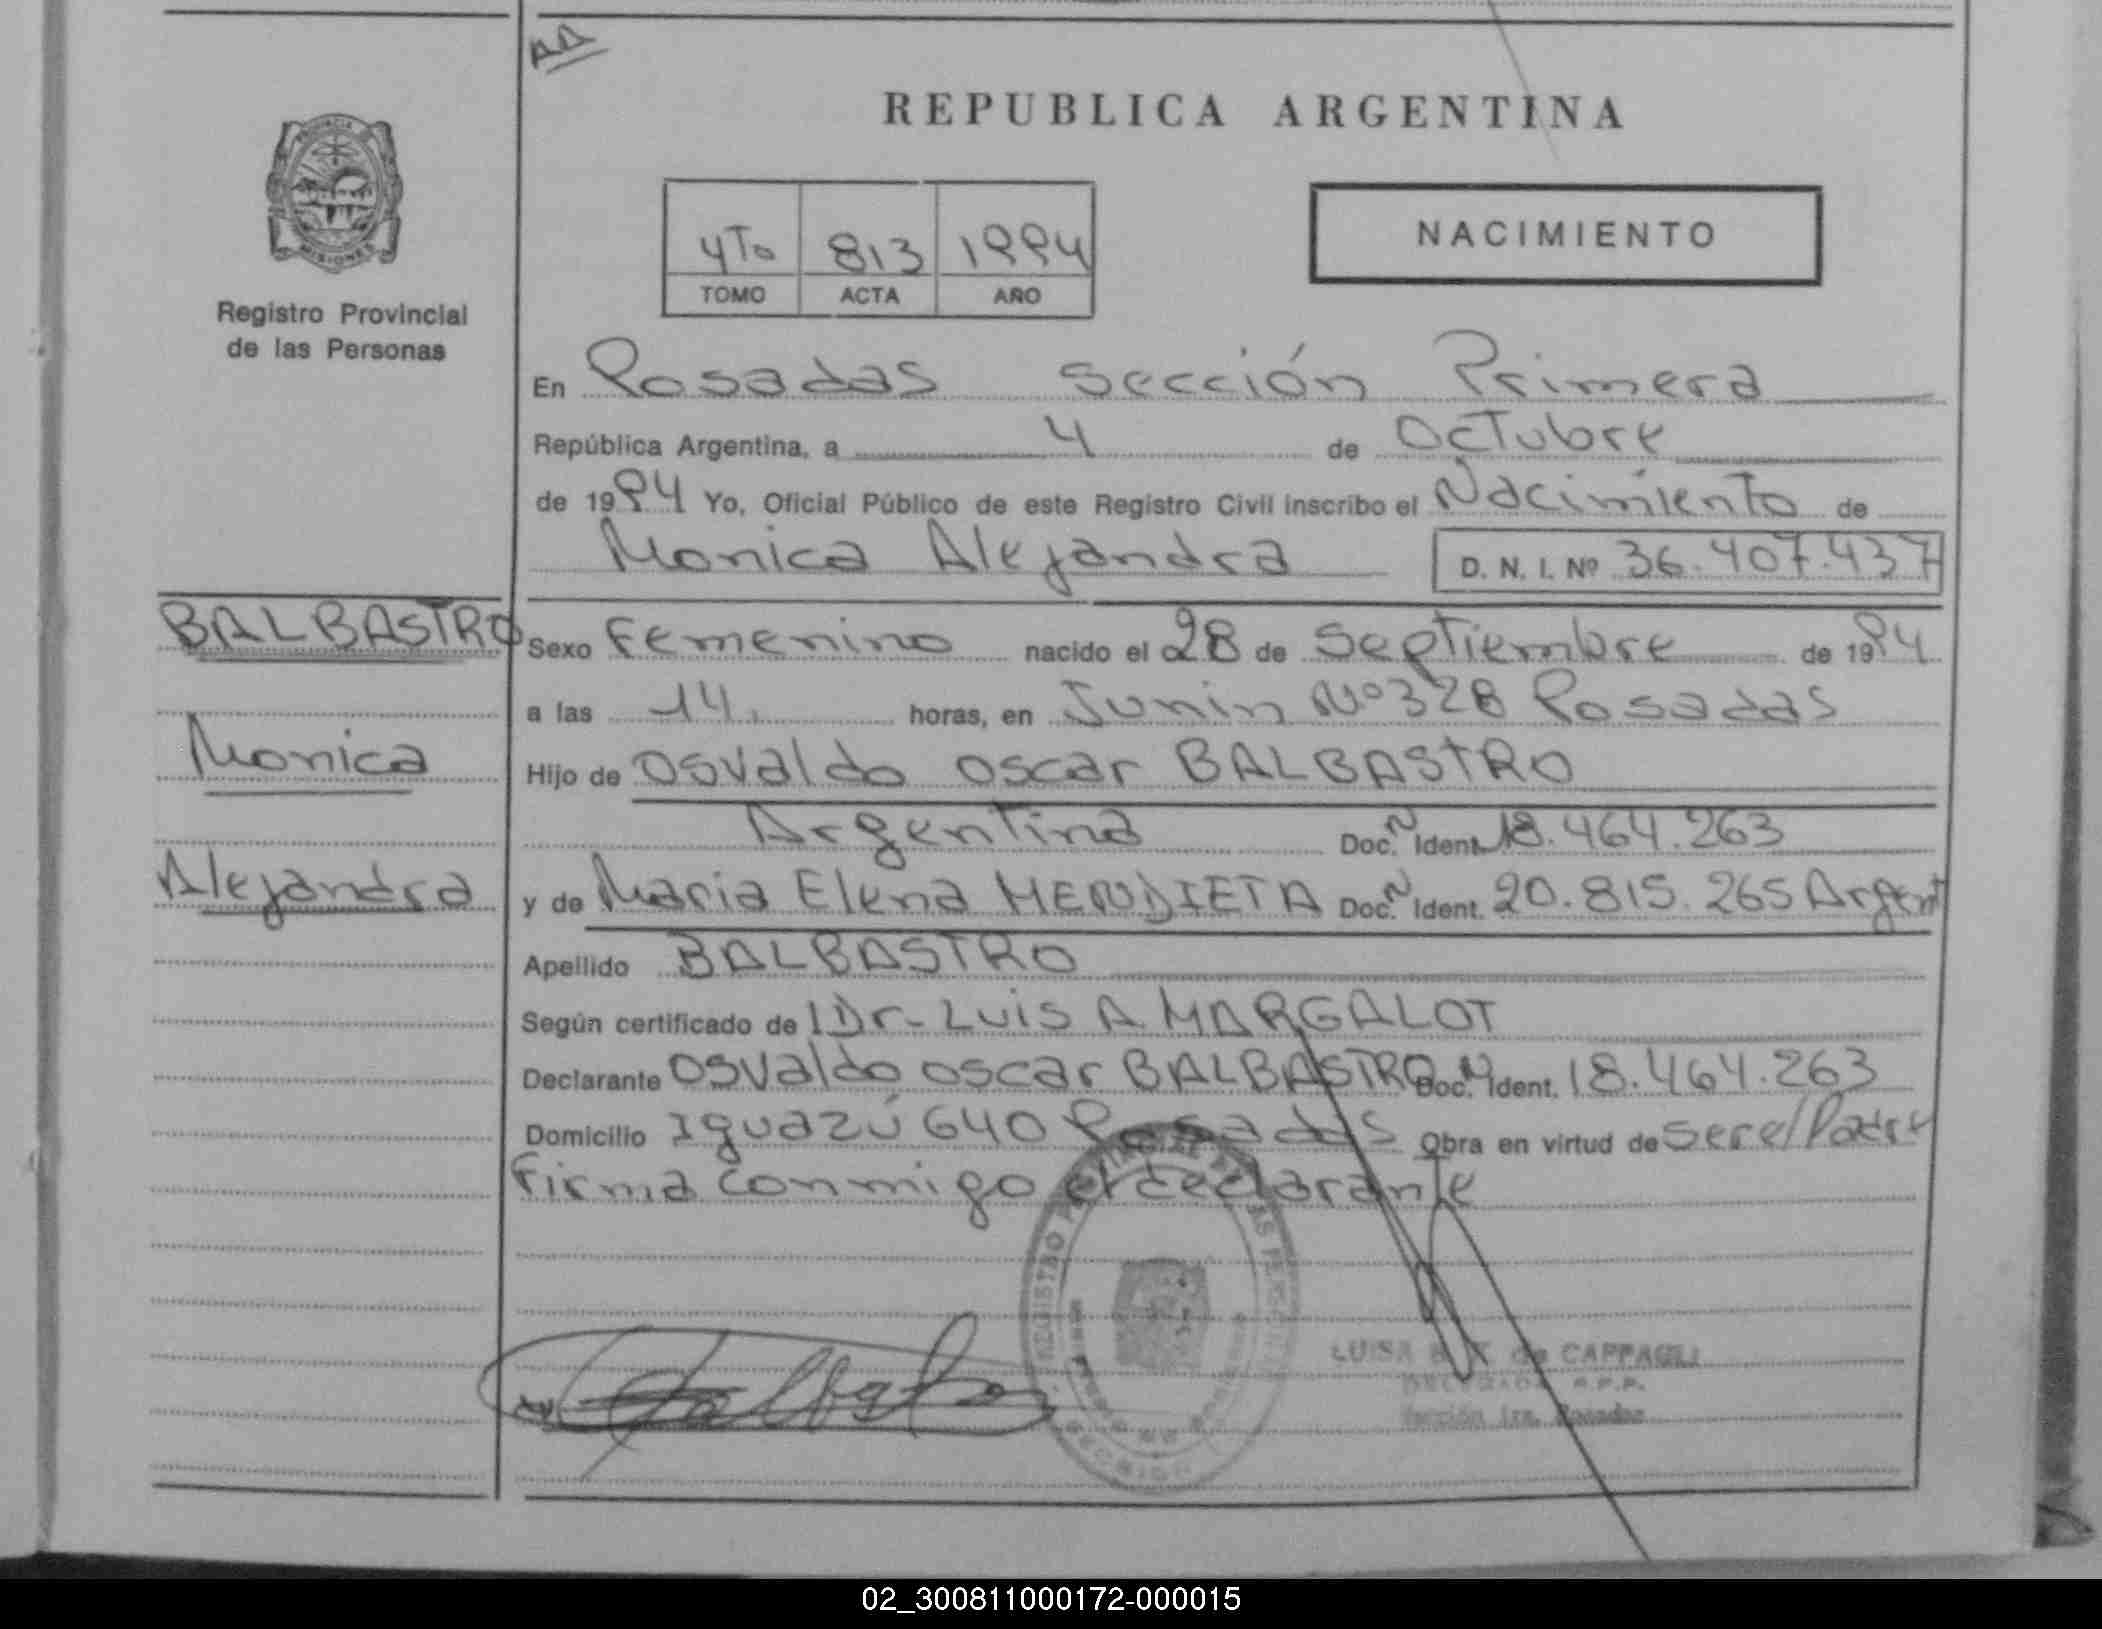 AA
REPUBLICA ARGENTINA
PROVINCIA
MISIONES
Registro Provincial
de las Personas
4To 813 1994
TOMO ACTA AÑO
NACIMIENTO
En Posadas sección Primera
República Argentina, a 4 de Octubre
de 1994 Yo, Oficial Público de este Registro Civil inscribo el Nacimiento de
Monica Alejandra D. N. I. Nº 36.407.437
BALBASTRO
Monica
Alejandra
Sexo Femenino nacido el 28 de Septiembre de 1994
a las 14. horas, en Junin Nº 328 Posadas
Hijo de Osvaldo Oscar BALBASTRO
Argentina Doc. N Ident. 18.464.263
y de Maria Elena MENDIETA Doc. N Ident. 20.815.265 Argent
Apellido BALBASTRO
Según certificado de Dr- Luis A MARGALOT
Declarante Osvaldo Oscar BALBASTRO Doc. N Ident. 18.464.263
Domicilio Iguazú 640 Posadas Obra en virtud de ser el Padre
Firma conmigo el declarante
REGISTRO PROVINCIAL DE LAS PERSONAS
SECCION
LUISA de CAPPAGLI
DELEGADA R.P.P.
Sección 1ra. Posadas
02_300811000172-000015